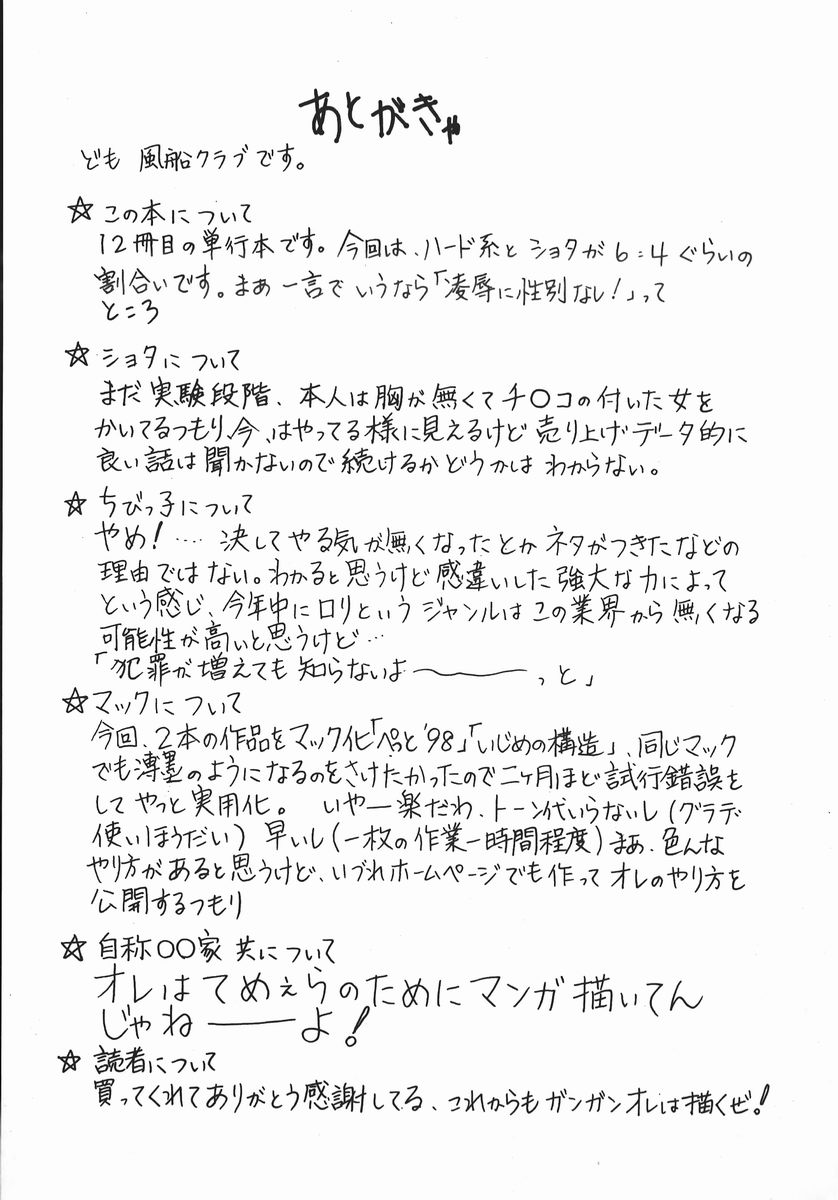 あとがきゃ
ども 風船クラブです。
☆この本について
12冊目の単行本です。今回は、ハード系とショタが6:4ぐらいの
割合いです。まあ一言でいうなら「凌辱に性別なし!」って
ところ
☆ショタについて
まだ実験段階、本人は胸が無くてチ〇コの付いた女を
かいてるつもり、今、はやってる様に見えるけど売り上げデータ的に
良い話は聞かないので続けるかどうかはわからない。
☆ちびっ子について
やめ!‥‥ 決してやる気が無くなったとかネタがつきたなどの
理由ではない。わかると思うけど感違いした強大な力によって
という感じ、今年中にロリというジャンルはこの業界から無くなる
可能性が高いと思うけど…
「犯罪が増えても知らないよ〜〜〜っと」
☆マックについて
今回、2本の作品をマック化「ぺっと'98」「いじめの構造」、同じマック
でも薄墨のようになるのをさけたかったので二ヶ月ほど試行錯誤を
してやっと実用化。 いやー楽だわ、トーン代いらないし(グラデ
使いほうだい) 早いし(一枚の作業一時間程度)まあ、色んな
やり方があると思うけど、いづれホームページでも作ってオレのやり方を
公開するつもり
☆自称〇〇家 共について
オレはてめぇらのためにマンガ描いてん
じゃねーーーよ!
☆読者について
買ってくれてありがとう感謝してる、これからもガンガンオレは描くぜ。!